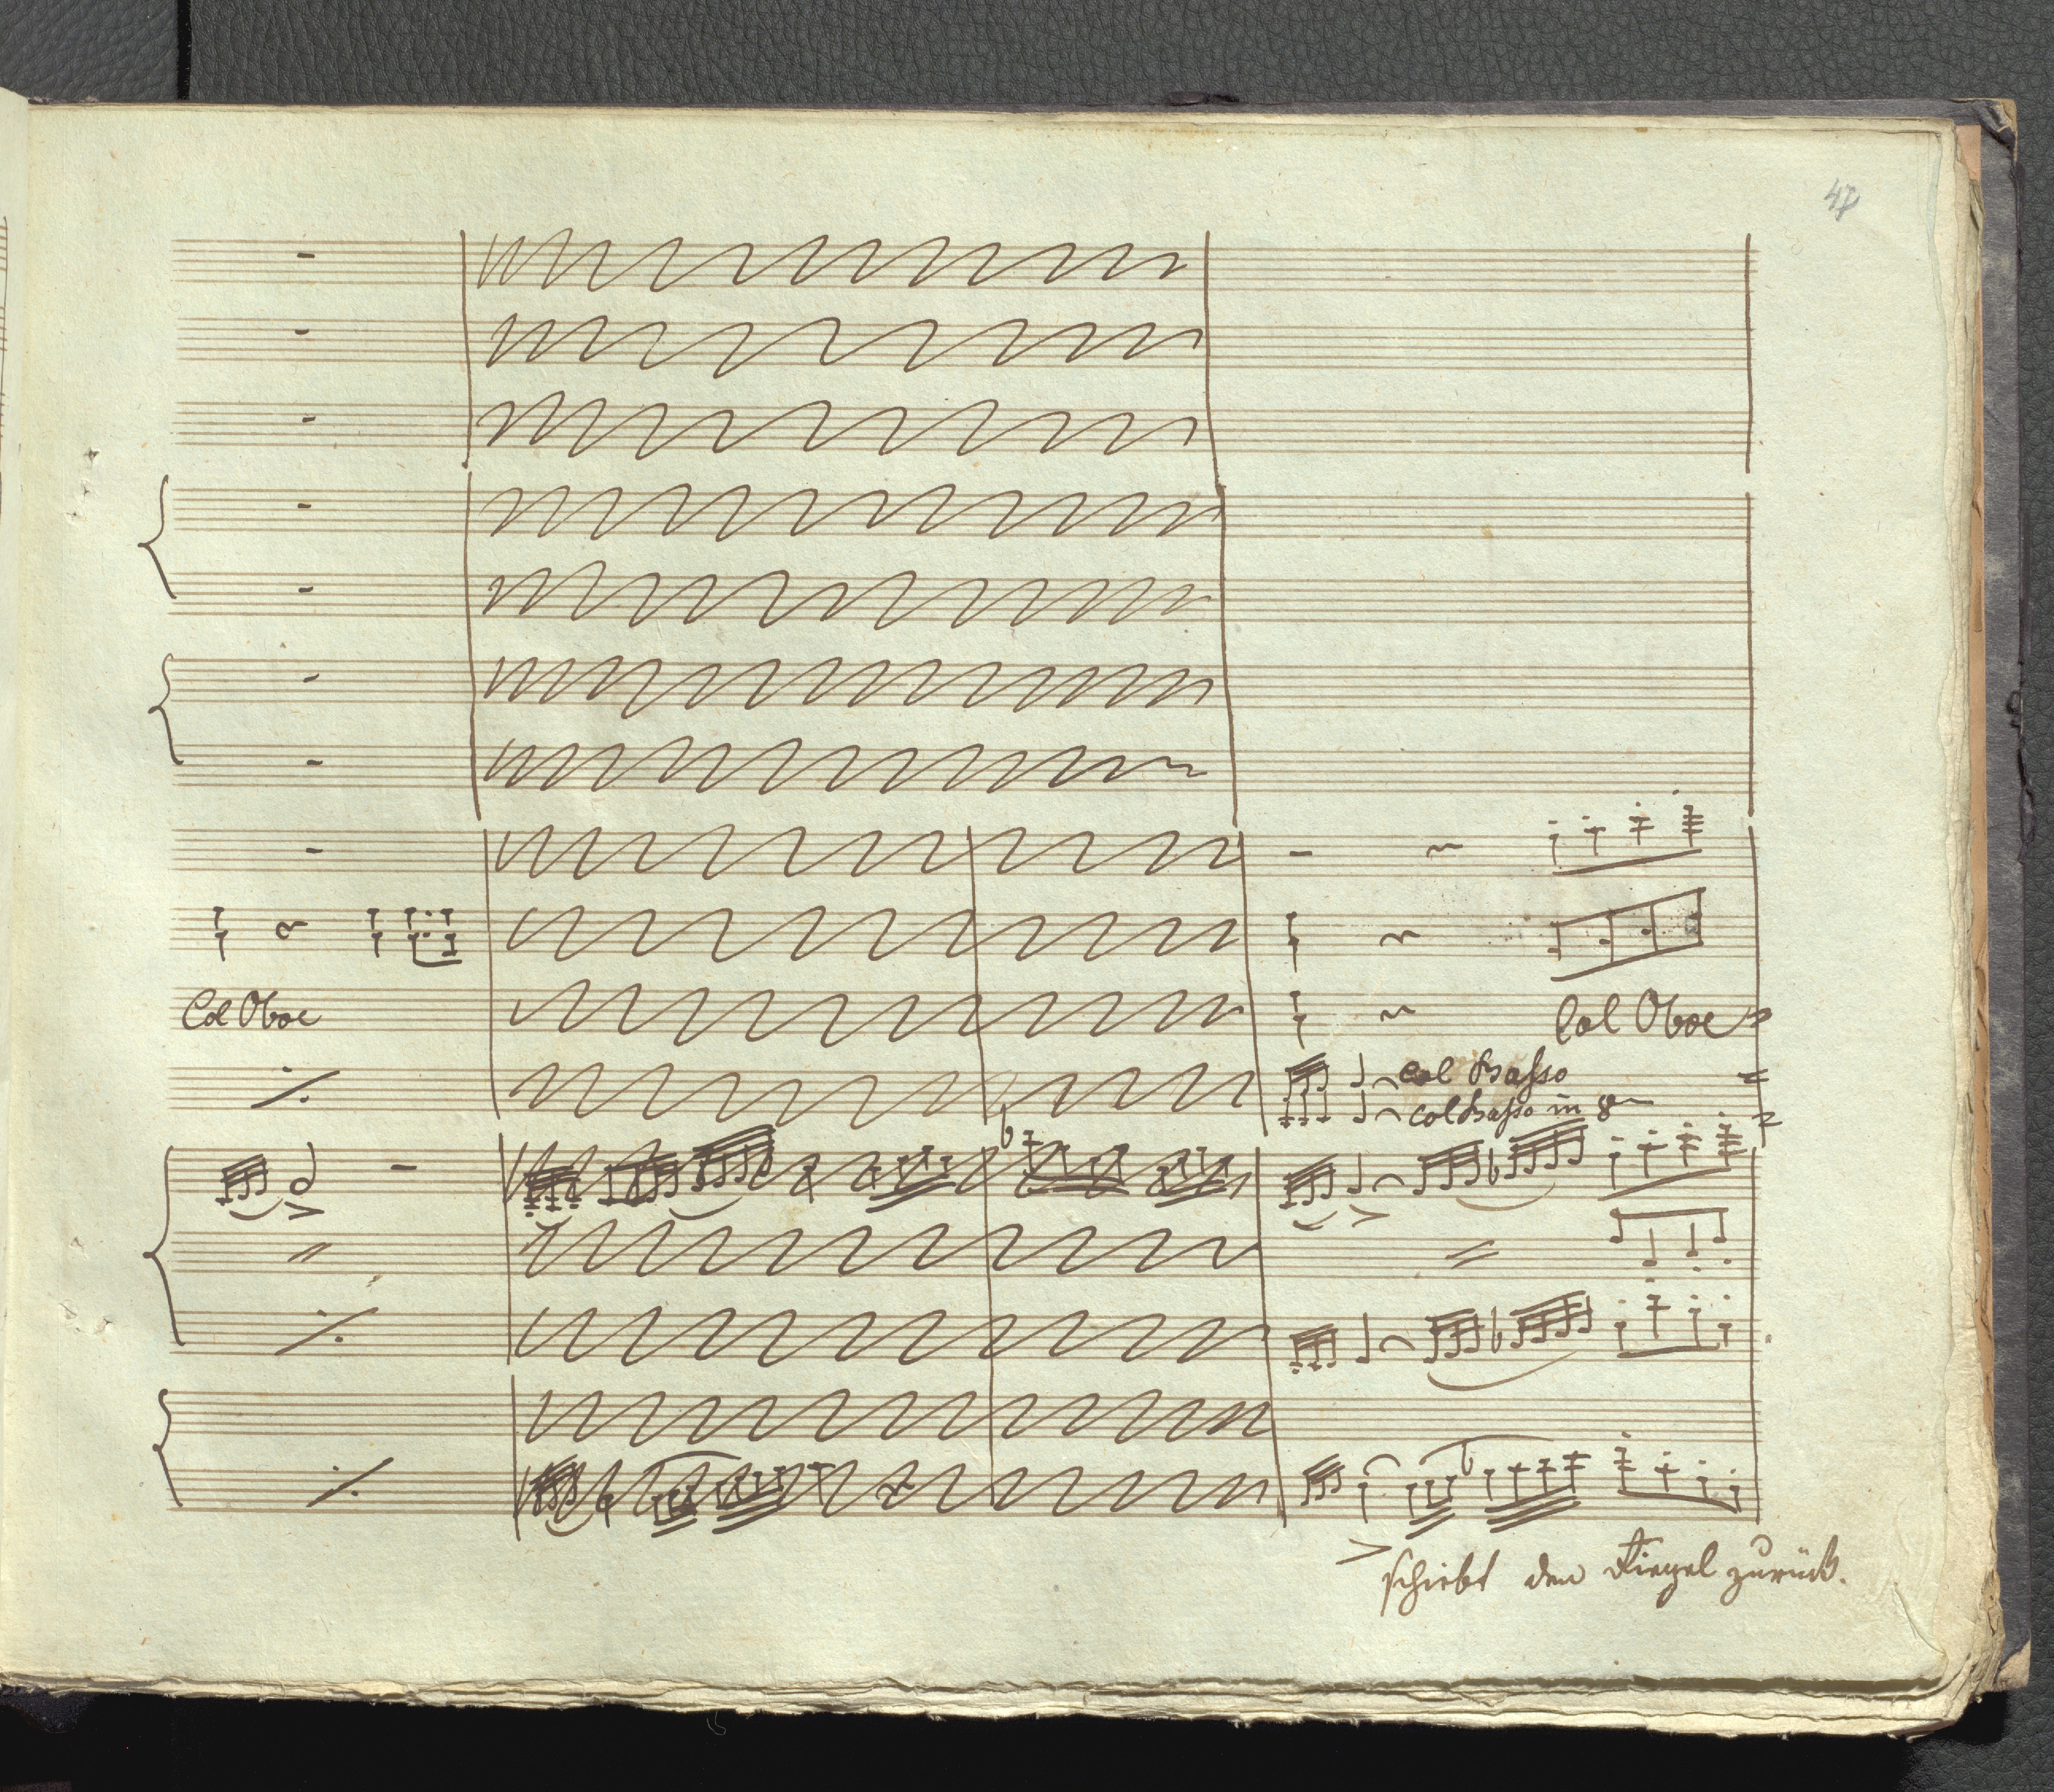 47
Col Oboe
Col Oboe
col Basso
col Basso in 8
schiebt den Riegel zurück.